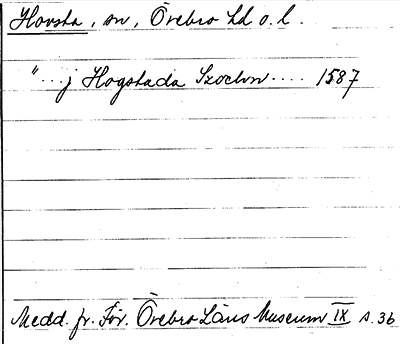 Hovsta, sn, Örebro hd o. l.
"... j Hogstada Szochn.... 1587
Medd. fr. För. Örebro Läns Museum IX s. 36